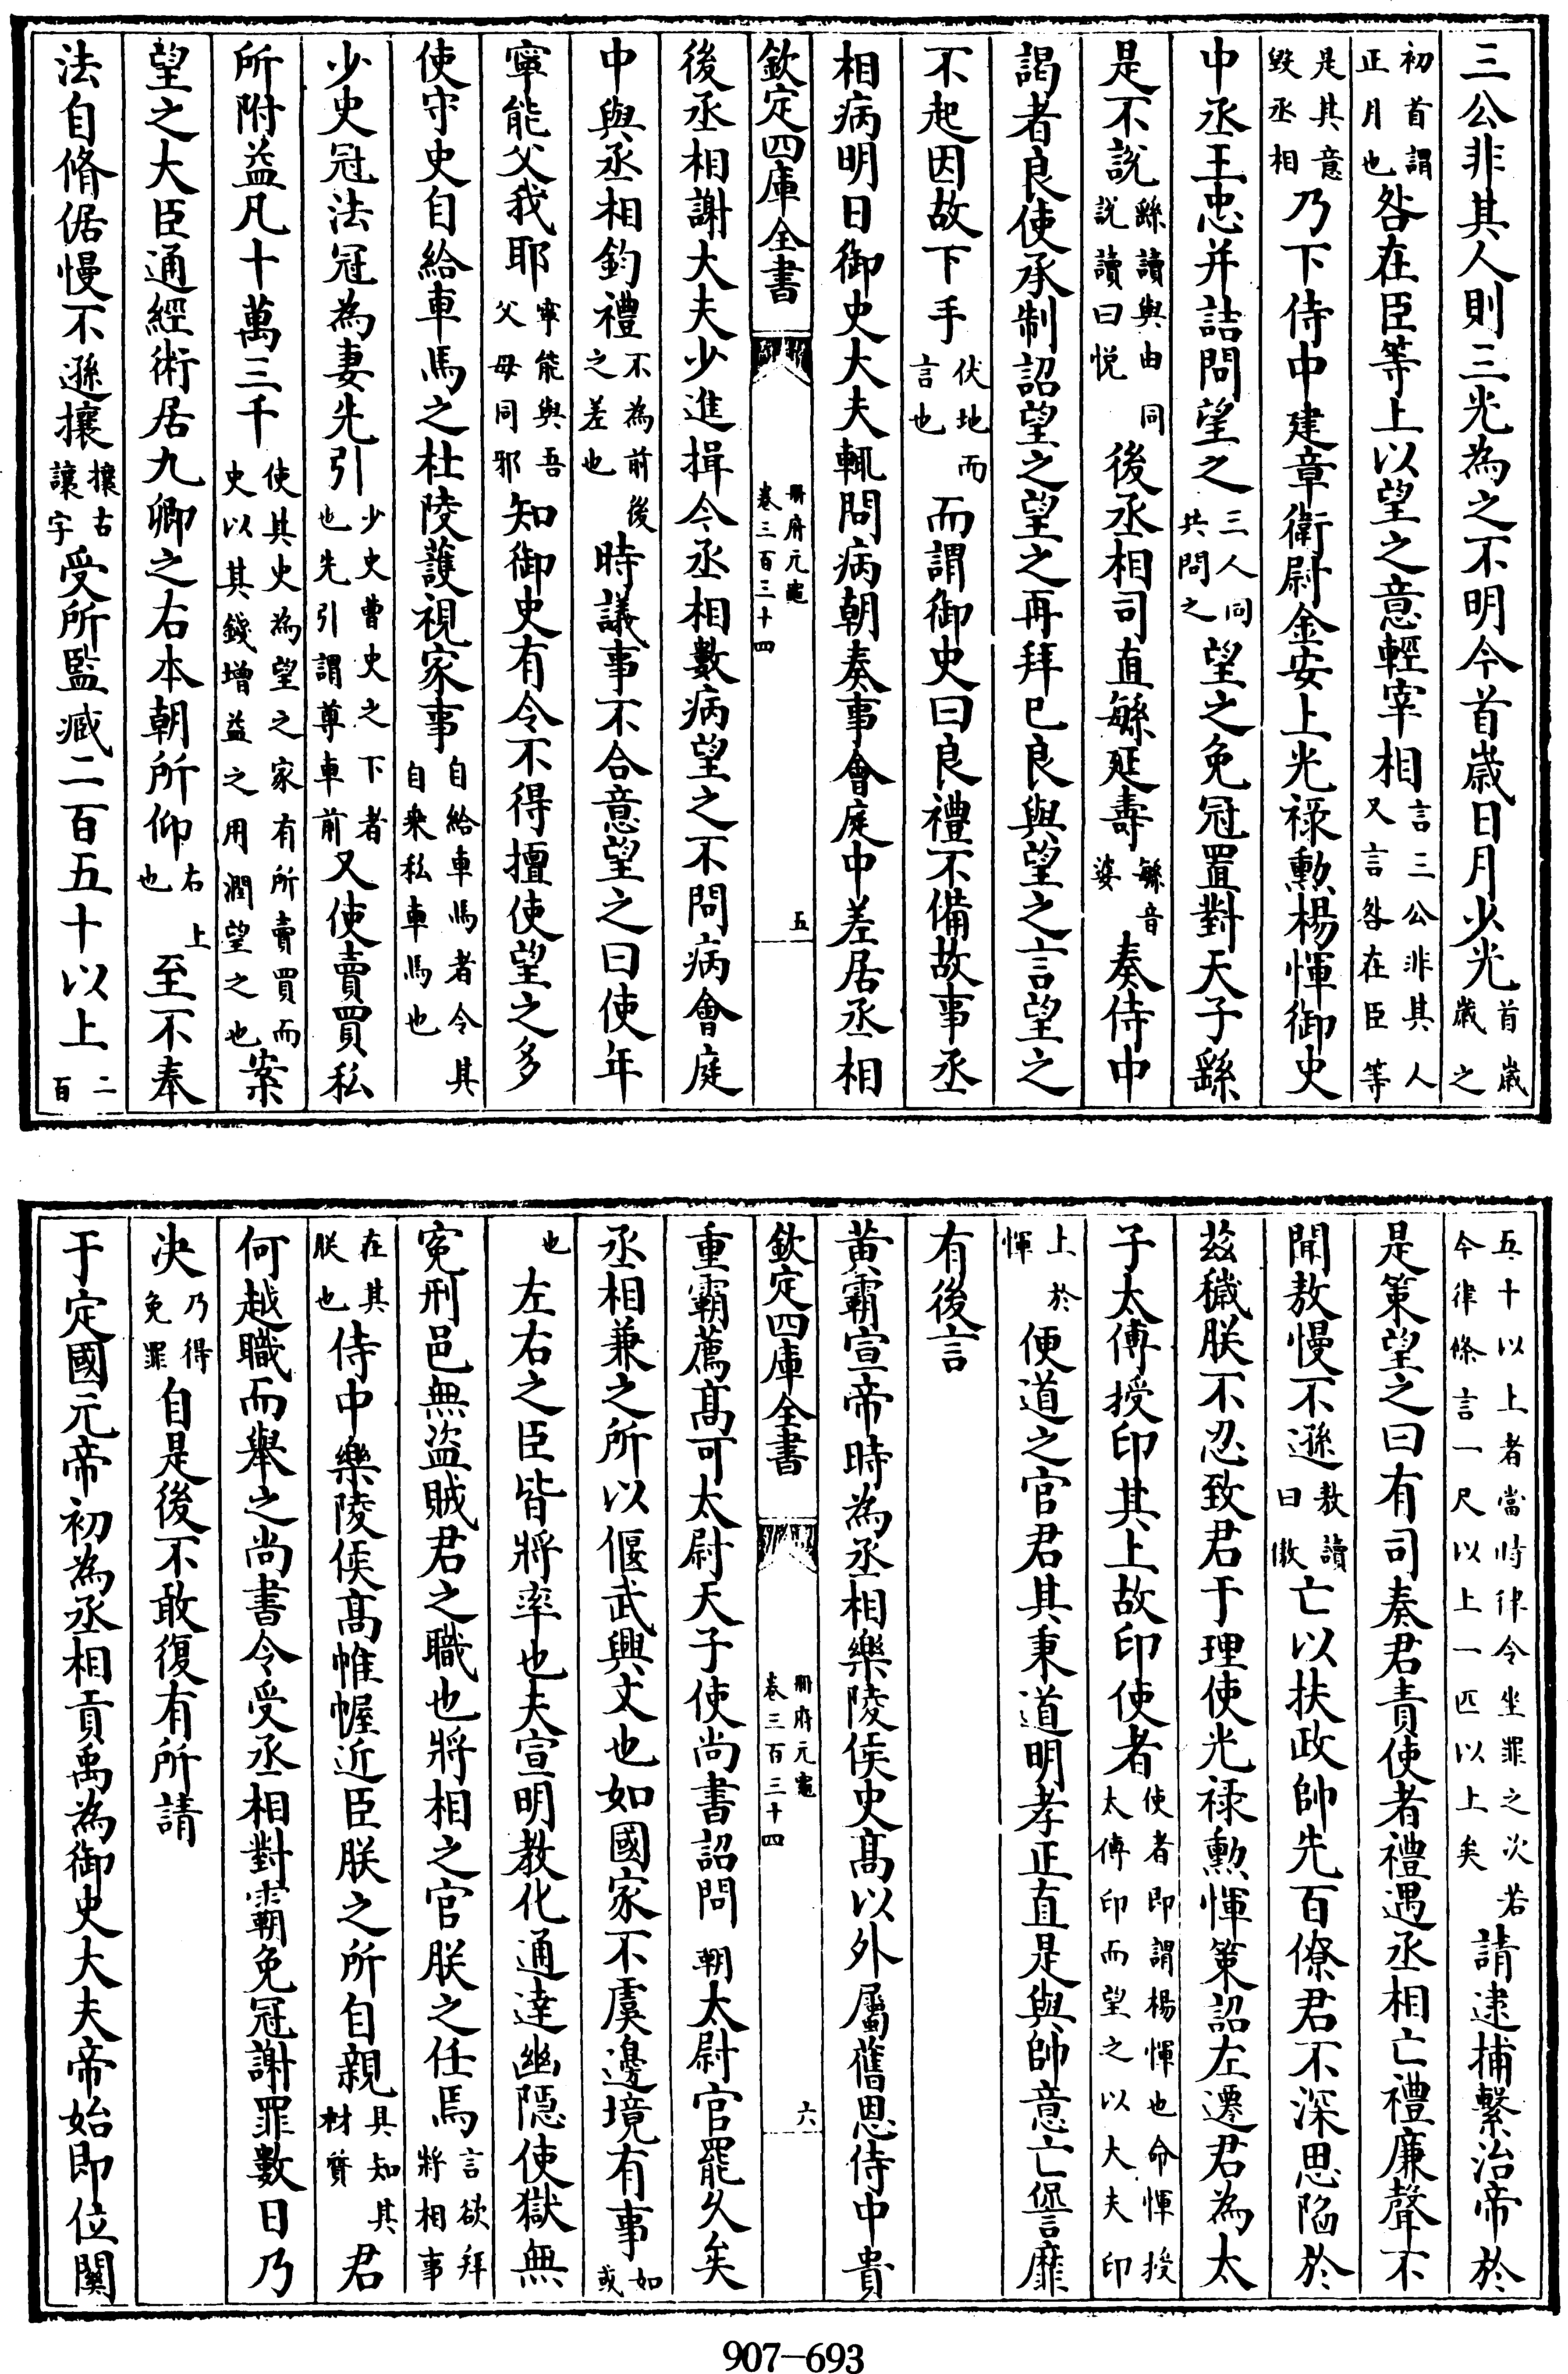 三公非其人則三光為之不明今首歲日月少光首歲歲之
初首謂正月也咎在臣等上以望之意輕宰相言三公非其人又言咎在臣等
是其意毀丞相乃下侍中建章衛尉金安上光祿勲楊惲御史
中丞王忠并詰問望之三人同共問之望之免冠置對天子繇
是不說繇讀與由同說讀曰悅後丞相司直繁延壽繁音婆奏侍中
謁者良使承制詔望之望之再拜已良與望之言望之
不起因故下手伏地而言也而謂御史曰良禮不備故事丞
相病明日御史大夫輒問病朝奏事會庭中差居丞相
欽定四庫全書 冊府元龜卷三百三十四 五
後丞相謝大夫少進揖今丞相數病望之不問病會庭
中與丞相鈞禮不為前後之差也時議事不合意望之曰使年
寧能父我耶寧能與吾父母同邪知御史有令不得擅使望之多
使守史自給車馬之杜陵護視家事自給車馬者令其自乘私車馬也
少史冠法冠為妻先引少史曹史之下者也先引謂尊車前又使賣買私
所附益凡十萬三千使其史為望之家有所賣買而史以其錢增益之用潤望之也案
望之大臣通經術居九卿之右本朝所仰右上也至不奉
法自脩倨慢不遜攘攘古讓字受所監臧二百五十以上二百
五十以上者當時律令坐罪之次若今律條言一尺以上一匹以上矣請逮捕繫治帝於
是策望之曰有司奏君責使者禮遇丞相亡禮廉聲不
聞敖慢不遜敖讀曰傲亡以扶政帥先百僚君不深思陷於
茲穢朕不忍致君于理使光祿勲惲策詔左遷君為太
子太傅授印其上故印使者使者即謂楊惲也命惲授太傅印而望之以大夫印
上於惲便道之官君其秉道明孝正直是與帥意亡㥶靡
有後言
黄霸宣帝時為丞相樂陵侯史髙以外屬舊恩侍中貴
欽定四庫全書 冊府元龜卷三百三十四 六
重霸薦髙可太尉天子使尚書詔問朝太尉官罷久矣
丞相兼之所以偃武興文也如國家不虞邊境有事如或
也左右之臣皆將率也夫宣明教化通達幽隠使獄無
寃刑邑無盜賊君之職也將相之官朕之任焉言欲拜將相事
在其朕也侍中樂陵侯髙帷幄近臣朕之所自親具知其材質君
何越職而舉之尚書令受丞相對霸免冠謝罪數日乃
决乃得免罪自是後不敢復有所請
于定國元帝初為丞相貢禹為御史大夫帝始即位關
907-693